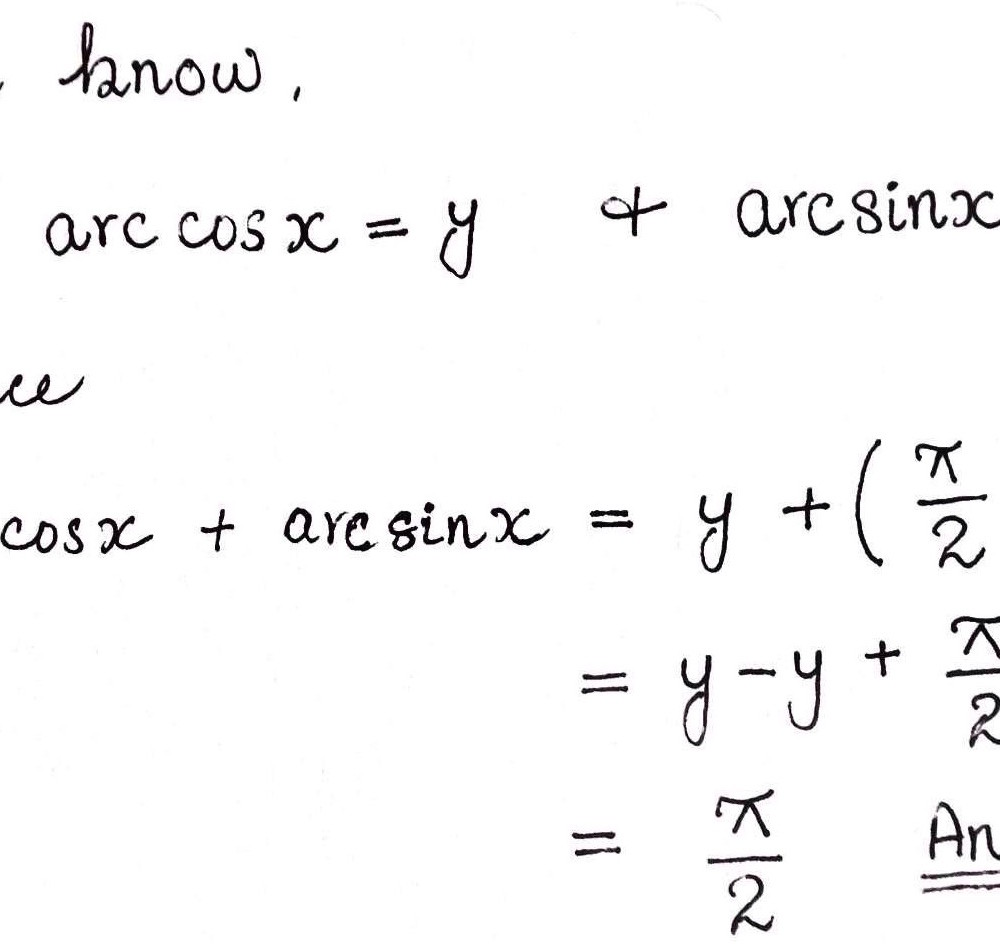 know,
arc cos x = y & arcsinx
cosx + arcsinx = y + ( π/2
= y - y + π/2
= π/2 An